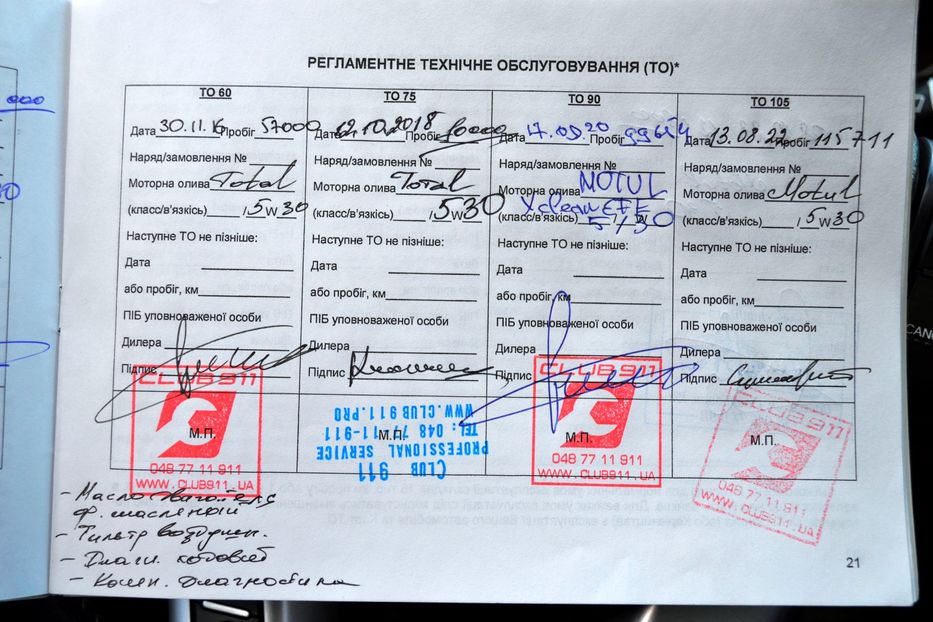 РЕГЛАМЕНТНЕ ТЕХНІЧНЕ ОБСЛУГОВУВАННЯ (ТО)*
ТО 60
Дата 30.11.16 Пробіг 57000
Наряд/замовлення №
Моторна олива Total
(класс/в'язкість) / 5W30
Наступне ТО не пізніше:
Дата
або пробіг, км
ПІБ уповноваженої особи
Дилера
Підпис
CLUB 911
М.П.
048 77 11 911
WWW.CLUB911.UA
ТО 75
Дата 12.10.2018 Пробіг
Наряд/замовлення №
Моторна олива Total
(класс/в'язкість) / 5W30
Наступне ТО не пізніше:
Дата
або пробіг, км
ПІБ уповноваженої особи
Дилера
Підпис
М.П.
CLUB 911
PROFESSIONAL SERVICE
TEL: 048 77-11-911
WWW.CLUB911.PRO
ТО 90
Дата 17.09.20 Пробіг
Наряд/замовлення №
Моторна олива MOTUL
(класс/в'язкість) Xclean EFE 5/30
Наступне ТО не пізніше:
Дата
або пробіг, км
ПІБ уповноваженої особи
Дилера
Підпис
CLUB 911
М.П.
048 77 11 911
WWW.CLUB911.UA
ТО 105
Дата 13.08.22 Пробіг 115711
Наряд/замовлення №
Моторна олива Motul
(класс/в'язкість) / 5W30
Наступне ТО не пізніше:
Дата
або пробіг, км
ПІБ уповноваженої особи
Дилера
Підпис
CLUB 911
М.П.
048 77 11 911
WWW.CLUB911.UA
- Масло двигателя
ф. масленный
- Фильтр воздушн.
- Комп. диагностика
21